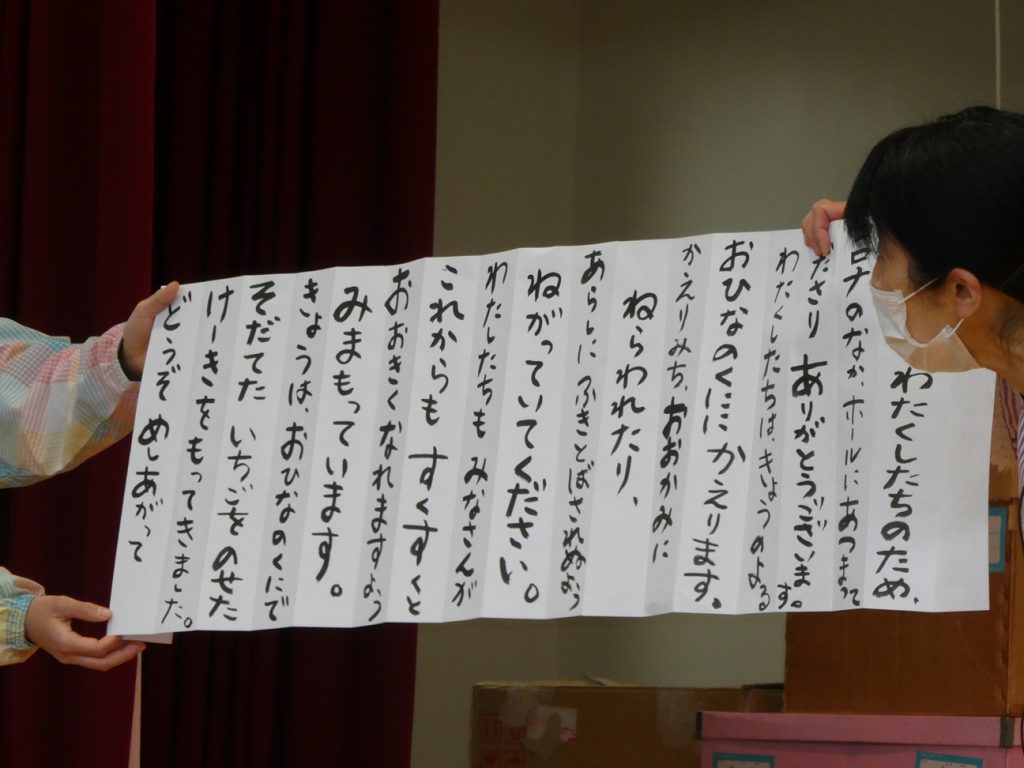 わたくしたちのため、
ロナのなか、ホールにあつまって
ださり ありがとうございます。
わたくしたちは、きょうのよる
おひなのくににかえります。
かえりみち、おおかみに
ねらわれたり、
あらしにふきとばされぬよう
ねがっていてください。
わたしたちも みなさんが
これからも すくすくと
おおきくなれますよう
みまもっています。
きょうは、おひなのくにで
そだてた いちごをのせた
けーきをもってきました。
どうぞ めしあがって